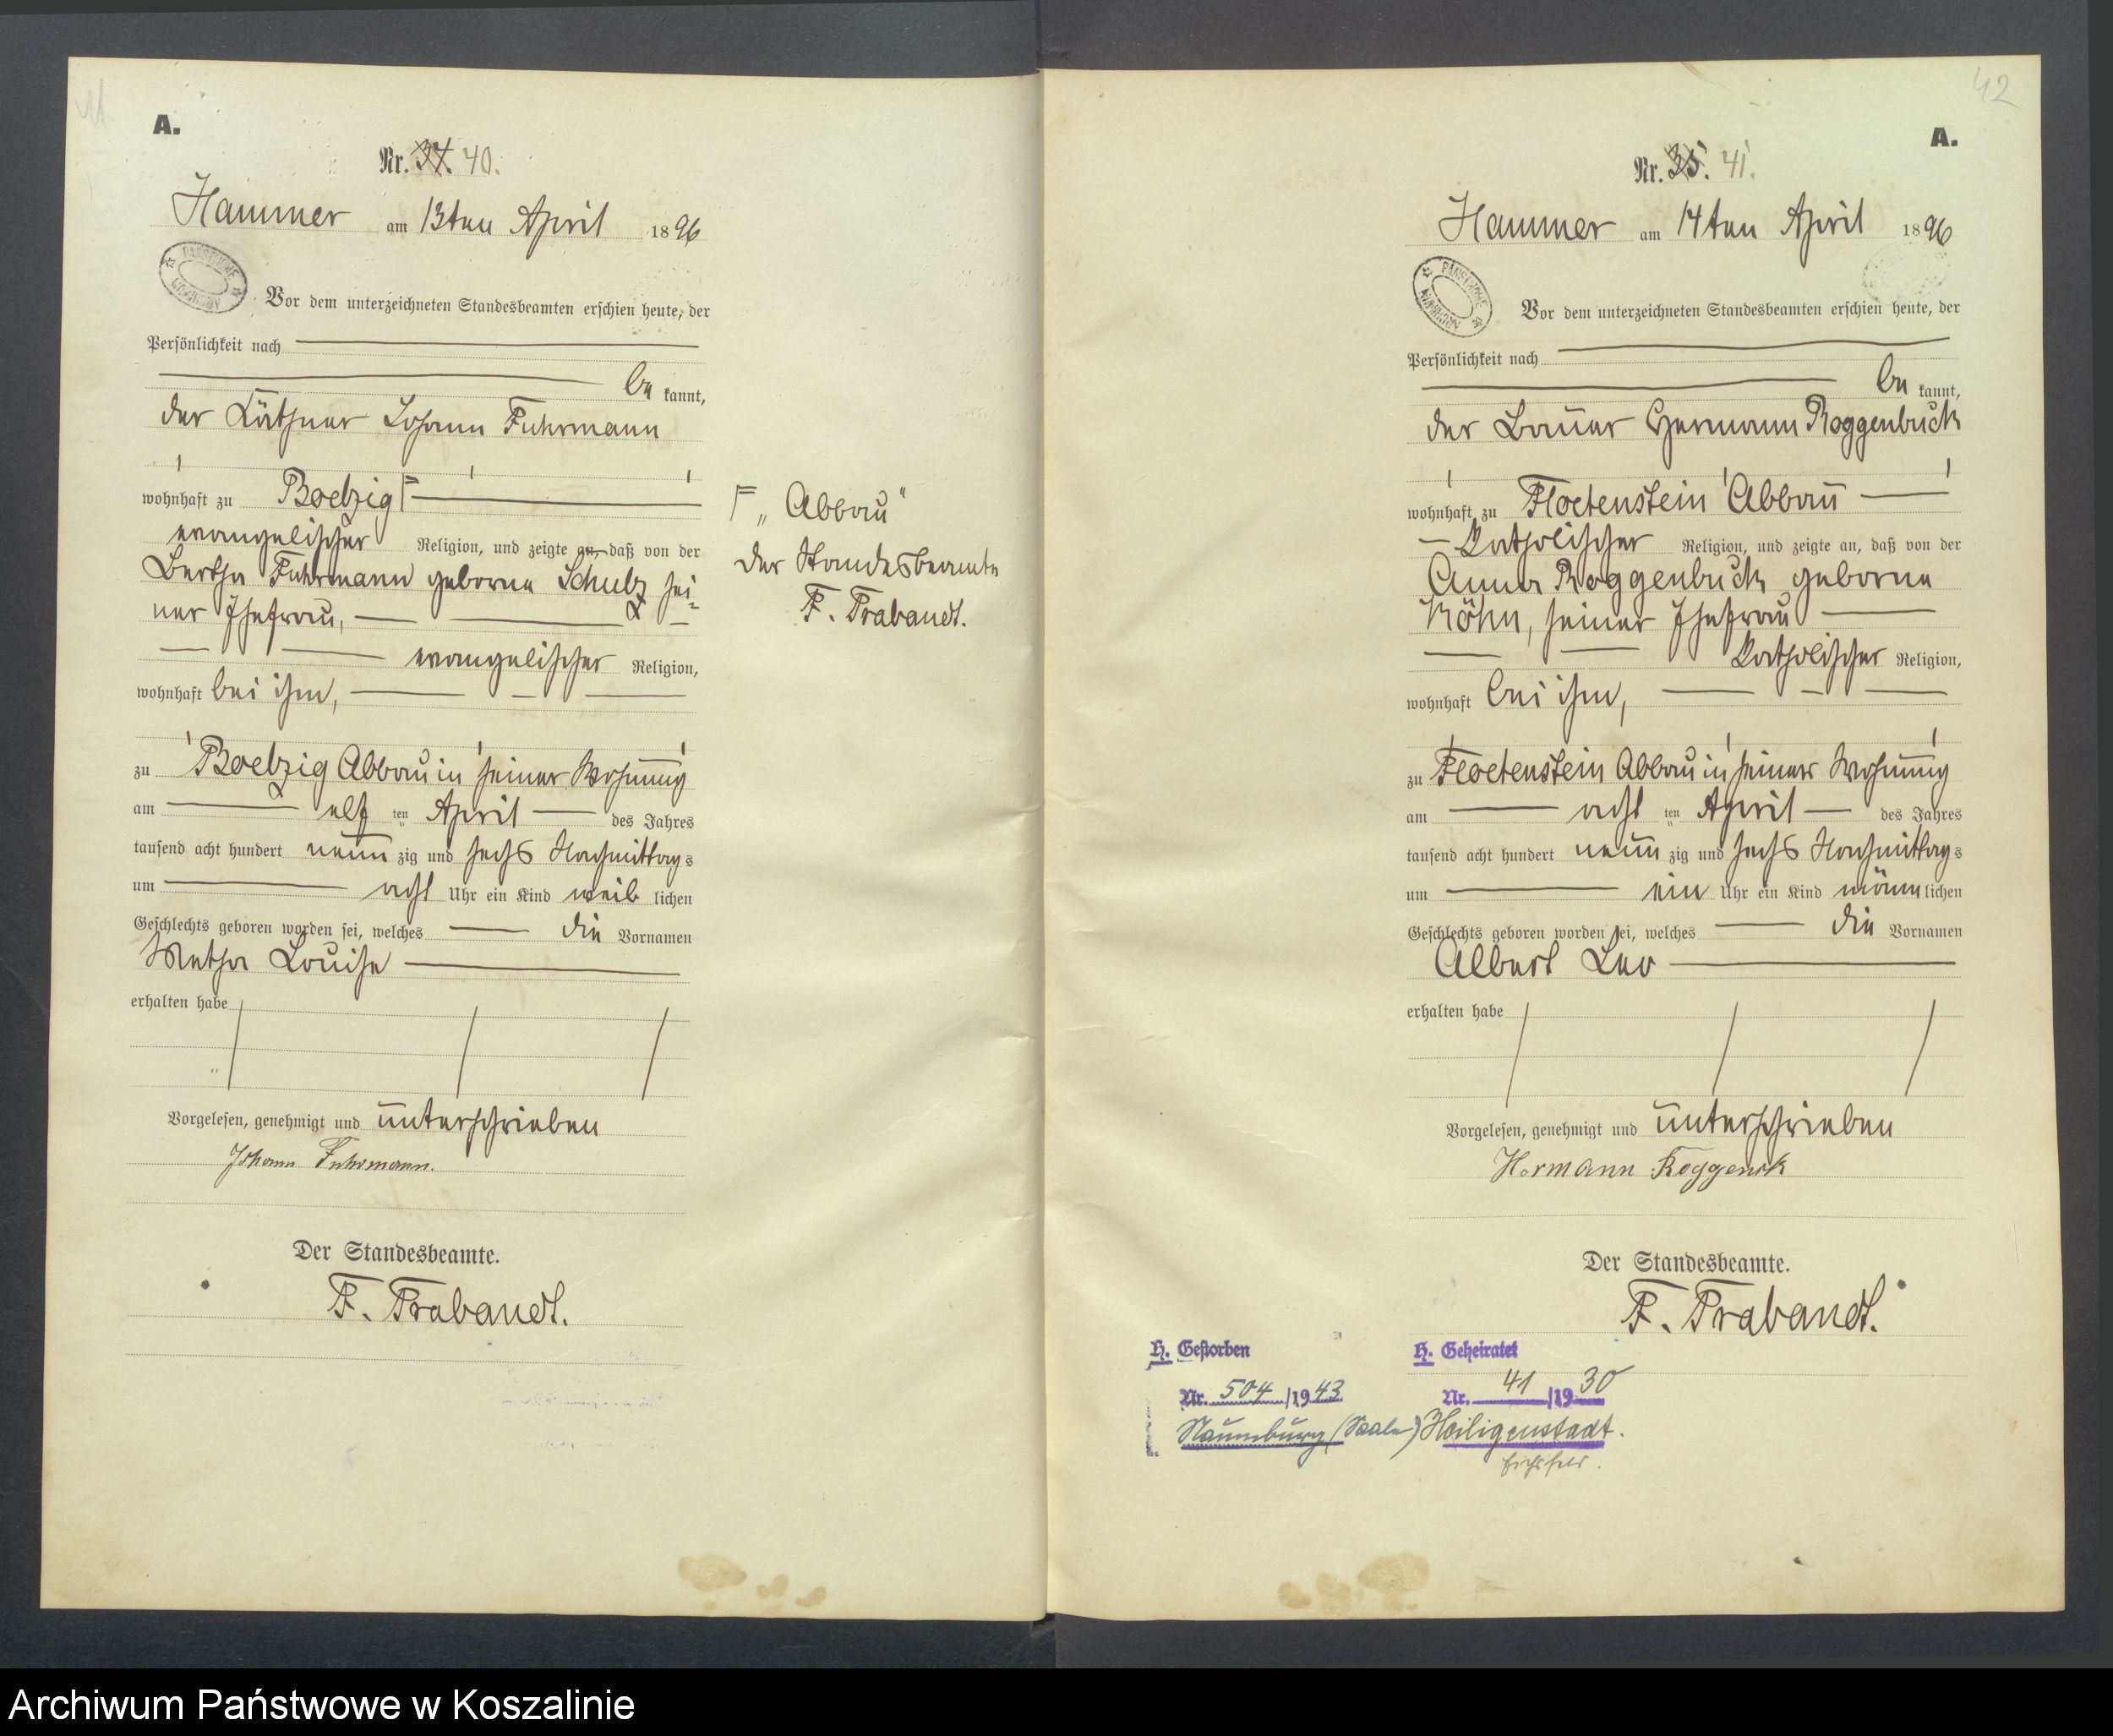 A.
Nr. 34. 40.
Hammer am 13ten April 1896
Vor dem unterzeichneten Standesbeamten erschien heute, der
Persönlichkeit nach
be kannt,
der Käthner Johann Fuhrmann
wohnhaft zu Boelzig
evangelischer Religion, und zeigte an, daß von der
Bertha Fuhrmann geborne Schulz sei-
ner Ehefrau,
evangelischer Religion,
wohnhaft bei ihm,
zu Boelzig Abbau in seiner Wohnung
am elf ten April des Jahres
tausend acht hundert neun zig und sechs Nachmittag s
um acht Uhr ein Kind weib lichen
Geschlechts geboren worden sei, welches die Vornamen
Metha Louise
erhalten habe
Vorgelesen, genehmigt und unterschrieben
Johann Fuhrmann.
Der Standesbeamte.
F. Trabandt.
„Abbau"
Der Standesbeamte
F. Trabandt.
42
A.
Nr. 35. 41.
Hammer am 14ten April 1896
Vor dem unterzeichneten Standesbeamten erschien heute, der
Persönlichkeit nach
be kannt,
der Bauer Hermann Roggenbuck
wohnhaft zu Floetenstein Abbau
katholischer Religion, und zeigte an, daß von der
Anna Roggenbuck geborne
Köhn, seiner Ehefrau
katholischer Religion,
wohnhaft bei ihm,
zu Floetenstein Abbau in seiner Wohnung
am acht ten April des Jahres
tausend acht hundert neun zig und sechs Nachmittag s
um ein Uhr ein Kind männ lichen
Geschlechts geboren worden sei, welches die Vornamen
Albert Leo
erhalten habe
Vorgelesen, genehmigt und unterschrieben
Hermann Roggenbuck
Der Standesbeamte.
F. Trabandt.
H. Gestorben
Nr. 504 /1943
Naumburg (Saale)
H. Geheiratet
Nr. 41 /1930
Heiligenstadt.
Eichsfeld.
Archiwum Państwowe w Koszalinie